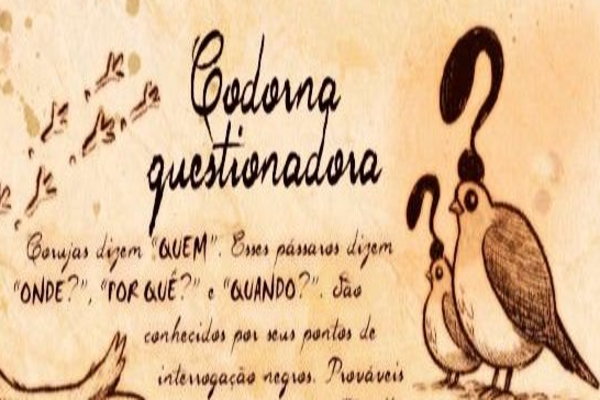 Codorna
questionadora
Corujas dizem "QUEM". Esses pássaros dizem
"ONDE?", "POR QUÊ?" e "QUANDO?". São
conhecidos por seus pontos de
interrogação negros. Prováveis